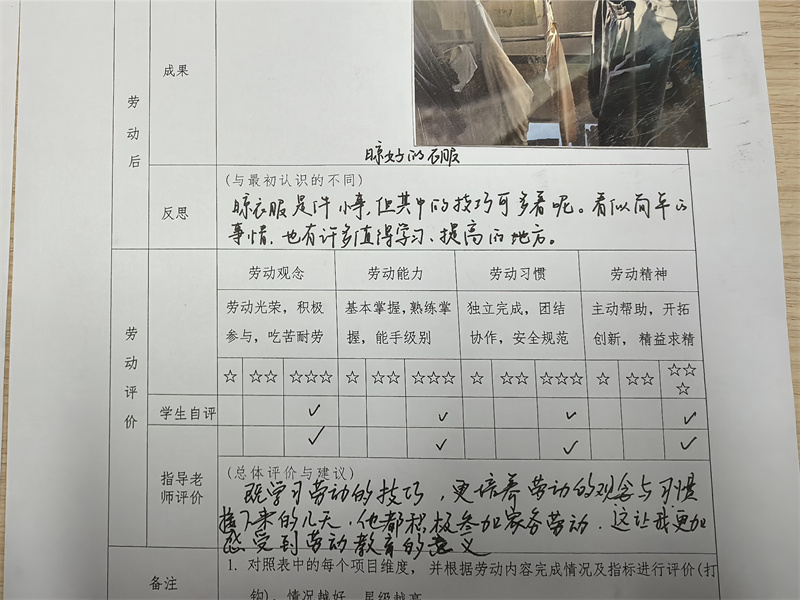 成果
劳动后
晾好的衣服
反思
(与最初认识的不同)
晾衣服是件小事,但其中的技巧可多着呢。看似简单的
事情,也有许多值得学习、提高的地方。
劳动评价
劳动观念 劳动能力 劳动习惯 劳动精神
劳动光荣，积极 基本掌握,熟练掌 独立完成，团结 主动帮助，开拓
参与，吃苦耐劳 握，能手级别 协作，安全规范 创新，精益求精
☆ ☆☆ ☆☆☆ ☆ ☆☆ ☆☆☆ ☆ ☆☆ ☆☆☆ ☆ ☆☆ ☆☆☆
学生自评 ✓ ✓ ✓ ✓
✓ ✓ ✓ ✓
指导老
师评价
(总体评价与建议)
既学习劳动的技巧,更培养劳动的观念与习惯
接下来的几天,他都积极参加家务劳动,这让我更加
感受到劳动教育的意义
备注
1. 对照表中的每个项目维度，并根据劳动内容完成情况及指标进行评价(打
钩)，情况越好，星级越高